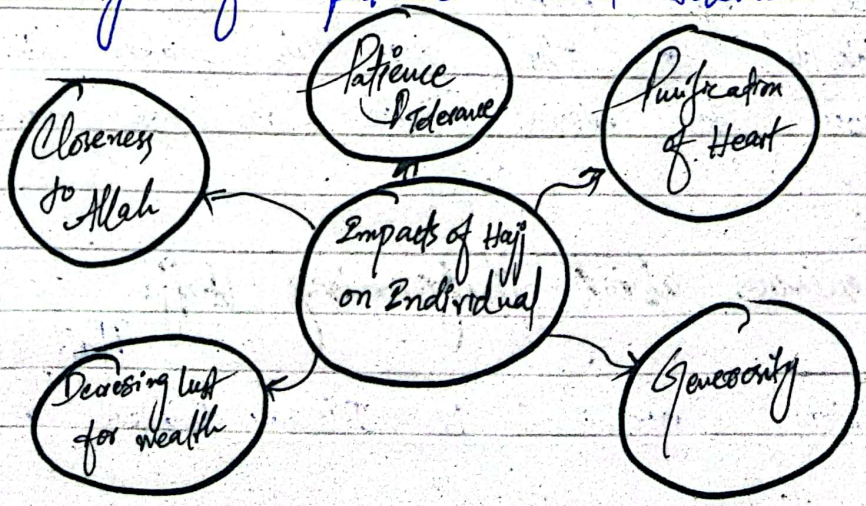 Patience
& Tolerance
Purification
of Heart
Closeness
to Allah
Impacts of Hajj
on Individual
Decresing Lust
for wealth
Generosity